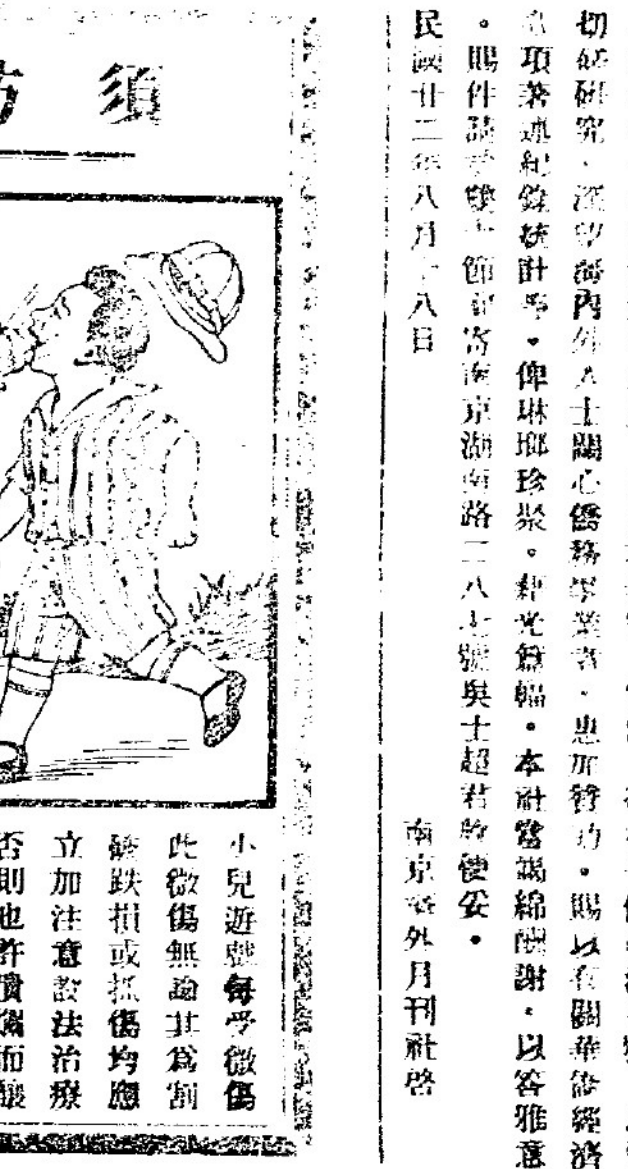 切磋研究、深望海內外人士關心僑務學業者、惠加贊助。賜以有關華僑經濟
項著述紀錄統計等。俾琳瑯珍聚。藉光篇幅。本社當竭綿酬謝。以答雅意
。賜件請於雙十節前寄南京湖南路二八七號吳士超君收便妥。
民國廿二年八月十八日
南京 外月刊社啓
須
小兒遊戲每受微傷
此微傷無論其爲割
破跌損或抓傷均應
立加注意設法治療
否則也許潰爛而釀